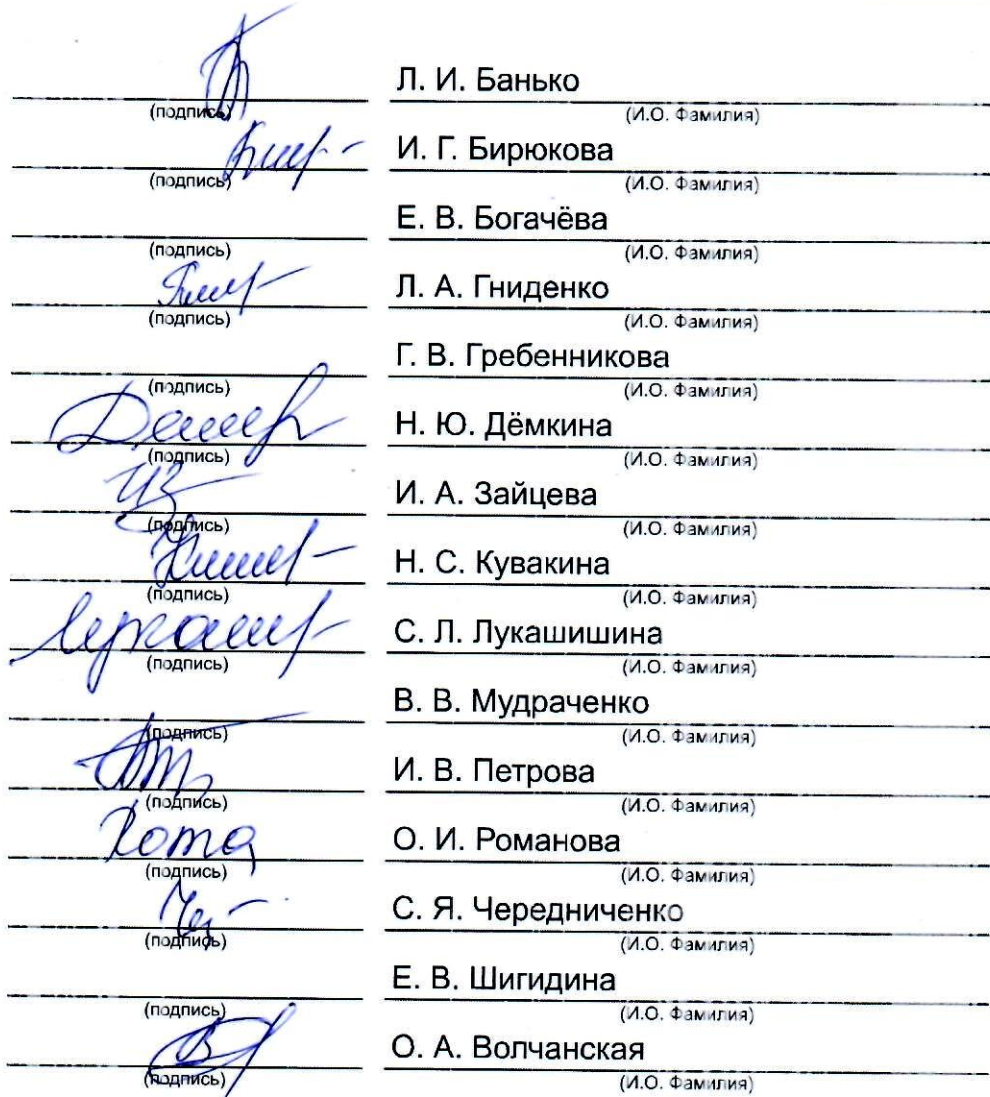 Л. И. Банько
(подпись) (И.О. Фамилия)
И. Г. Бирюкова
(подпись) (И.О. Фамилия)
Е. В. Богачёва
(подпись) (И.О. Фамилия)
Л. А. Гниденко
(подпись) (И.О. Фамилия)
Г. В. Гребенникова
(подпись) (И.О. Фамилия)
Н. Ю. Дёмкина
(подпись) (И.О. Фамилия)
И. А. Зайцева
(подпись) (И.О. Фамилия)
Н. С. Кувакина
(подпись) (И.О. Фамилия)
С. Л. Лукашишина
(подпись) (И.О. Фамилия)
В. В. Мудраченко
(подпись) (И.О. Фамилия)
И. В. Петрова
(подпись) (И.О. Фамилия)
О. И. Романова
(подпись) (И.О. Фамилия)
С. Я. Чередниченко
(подпись) (И.О. Фамилия)
Е. В. Шигидина
(подпись) (И.О. Фамилия)
О. А. Волчанская
(подпись) (И.О. Фамилия)